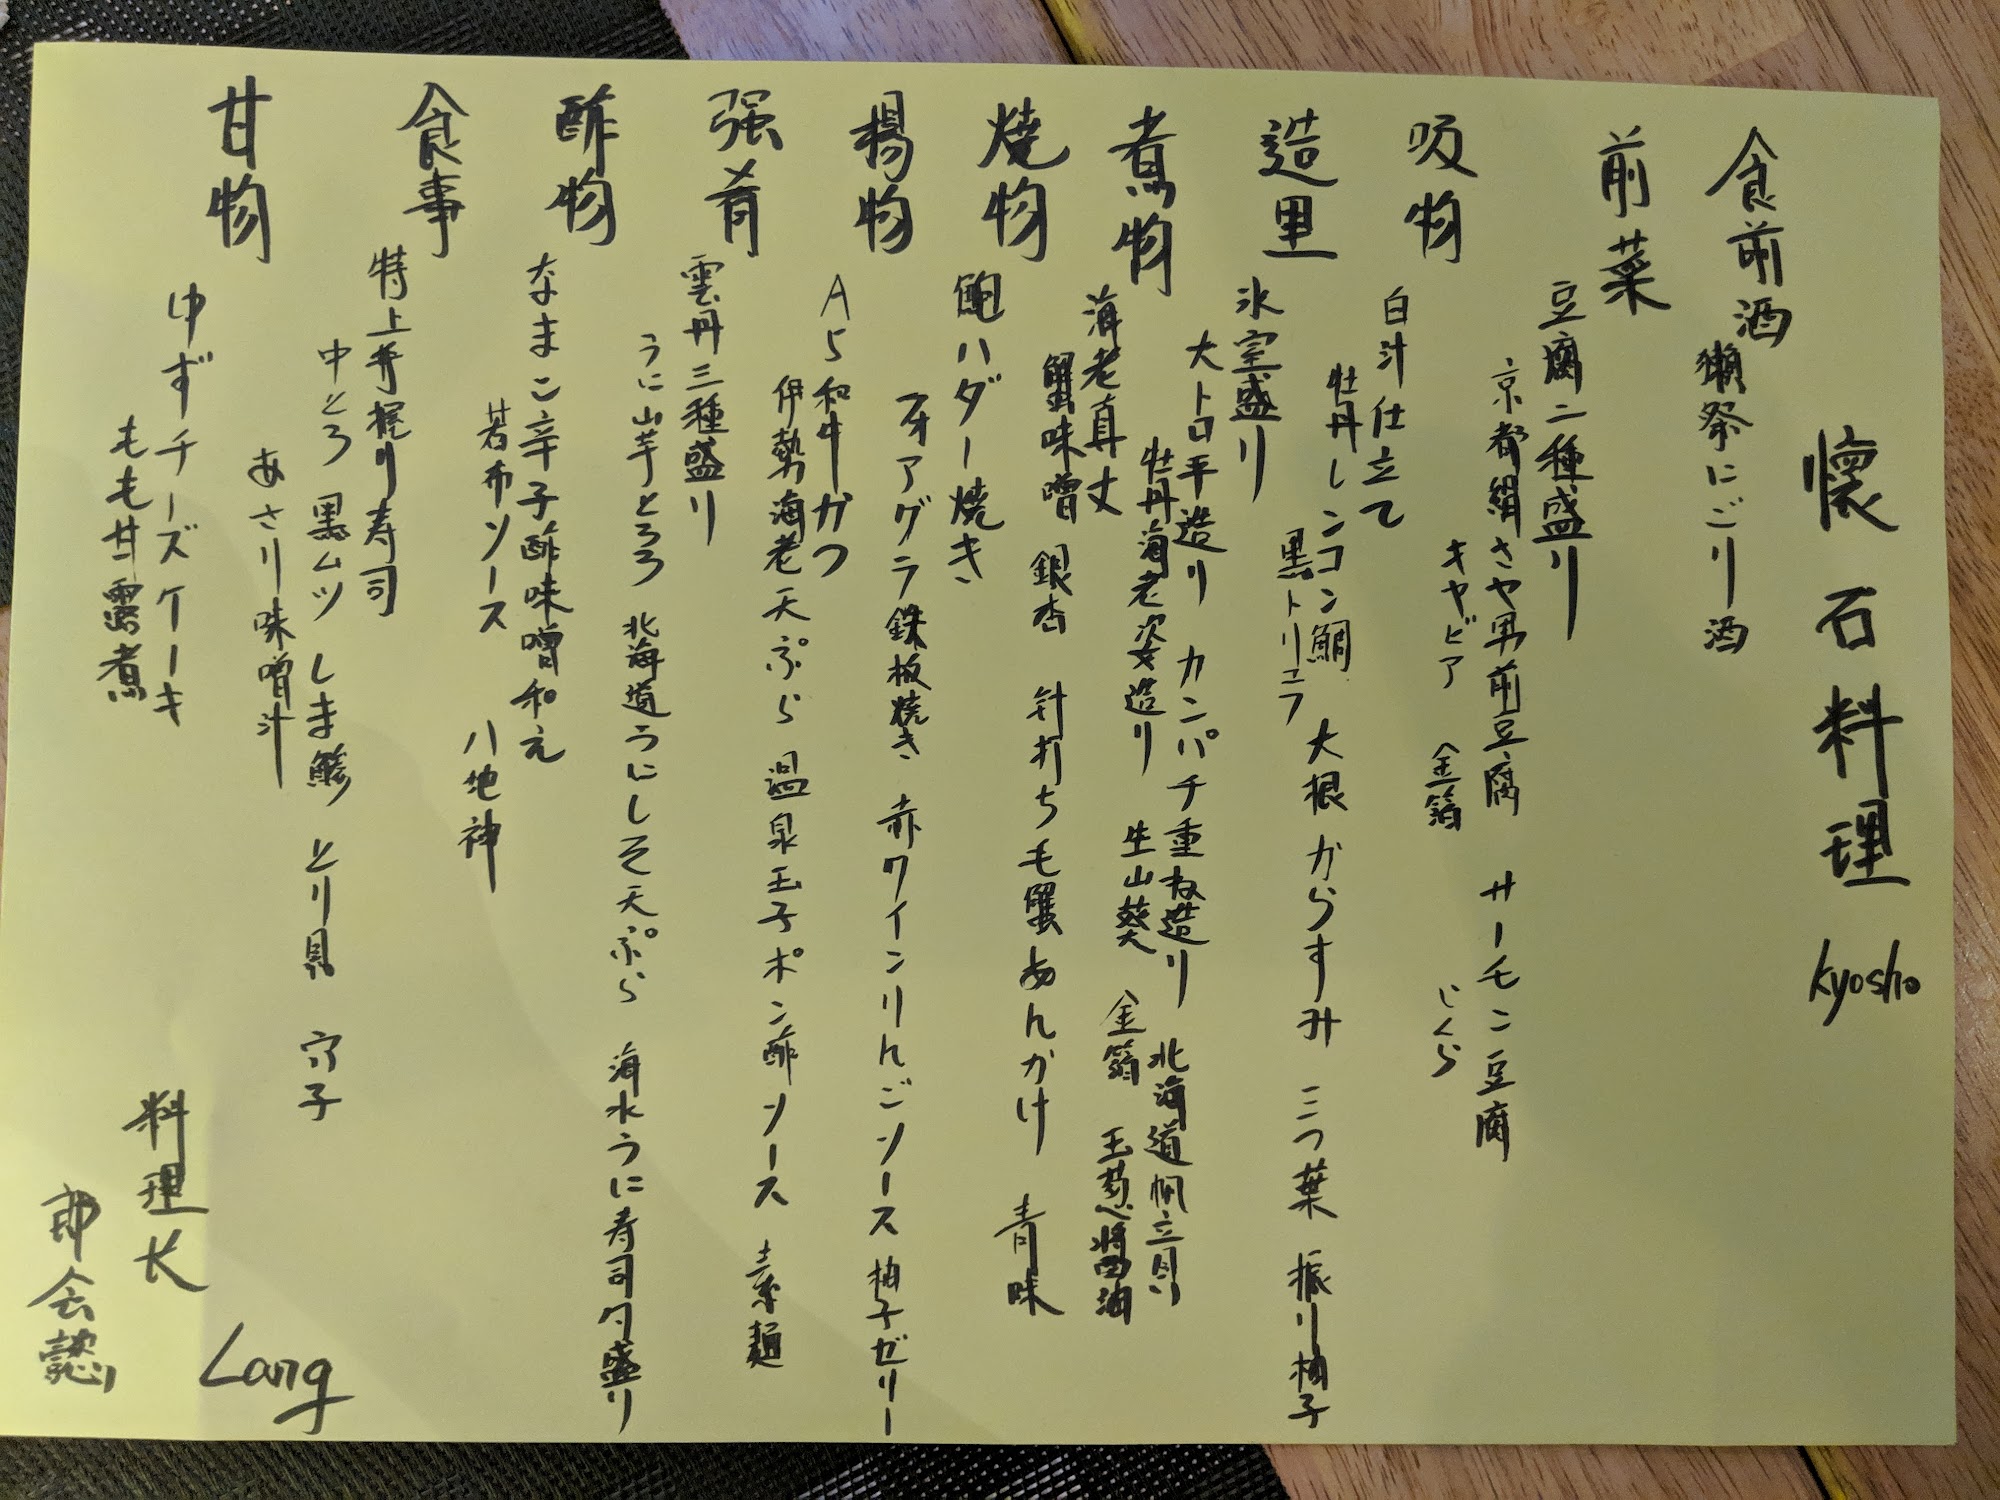 懐石料理 Kyosho
食前酒
獺祭にごり酒
前菜
豆腐二種盛り
京都絹さや男前豆腐 サーモン豆腐
キャビア 金箔 いくら
吸物
白汁仕立て
牡丹しンコン鯛 大根 からすみ 三つ葉 振り柚子
黒トリュフ
造里
氷室盛り
大トロ平造り カンパチ重ね造り 北海道帆立貝
牡丹海老姿造り 生山葵 金箔 玉葱醬油
煮物
海老真丈
蟹味噌 銀杏 針打ち毛蟹あんかけ 青味
焼物
鮑バター焼き
フォアグラ鉄板焼き 赤ワインりんごソース 柚子ゼリー
揚物
A5和牛かつ
伊勢海老天ぷら 温泉玉子ポン酢ソース 素麺
强肴
雲丹三種盛り
うに山芋とろろ 北海道うにしそ天ぷら 海水うに寿司勺盛り
酢物
なまこ辛子酢味噌和え
若布ソース 八地神
食事
特上弁握り寿司
中とろ 黒ムツ しま鯵 とり貝 穴子
あさり味噌汁
甘物
ゆずチーズケーキ
もも甘露煮
料理长
郎会懿
Lang